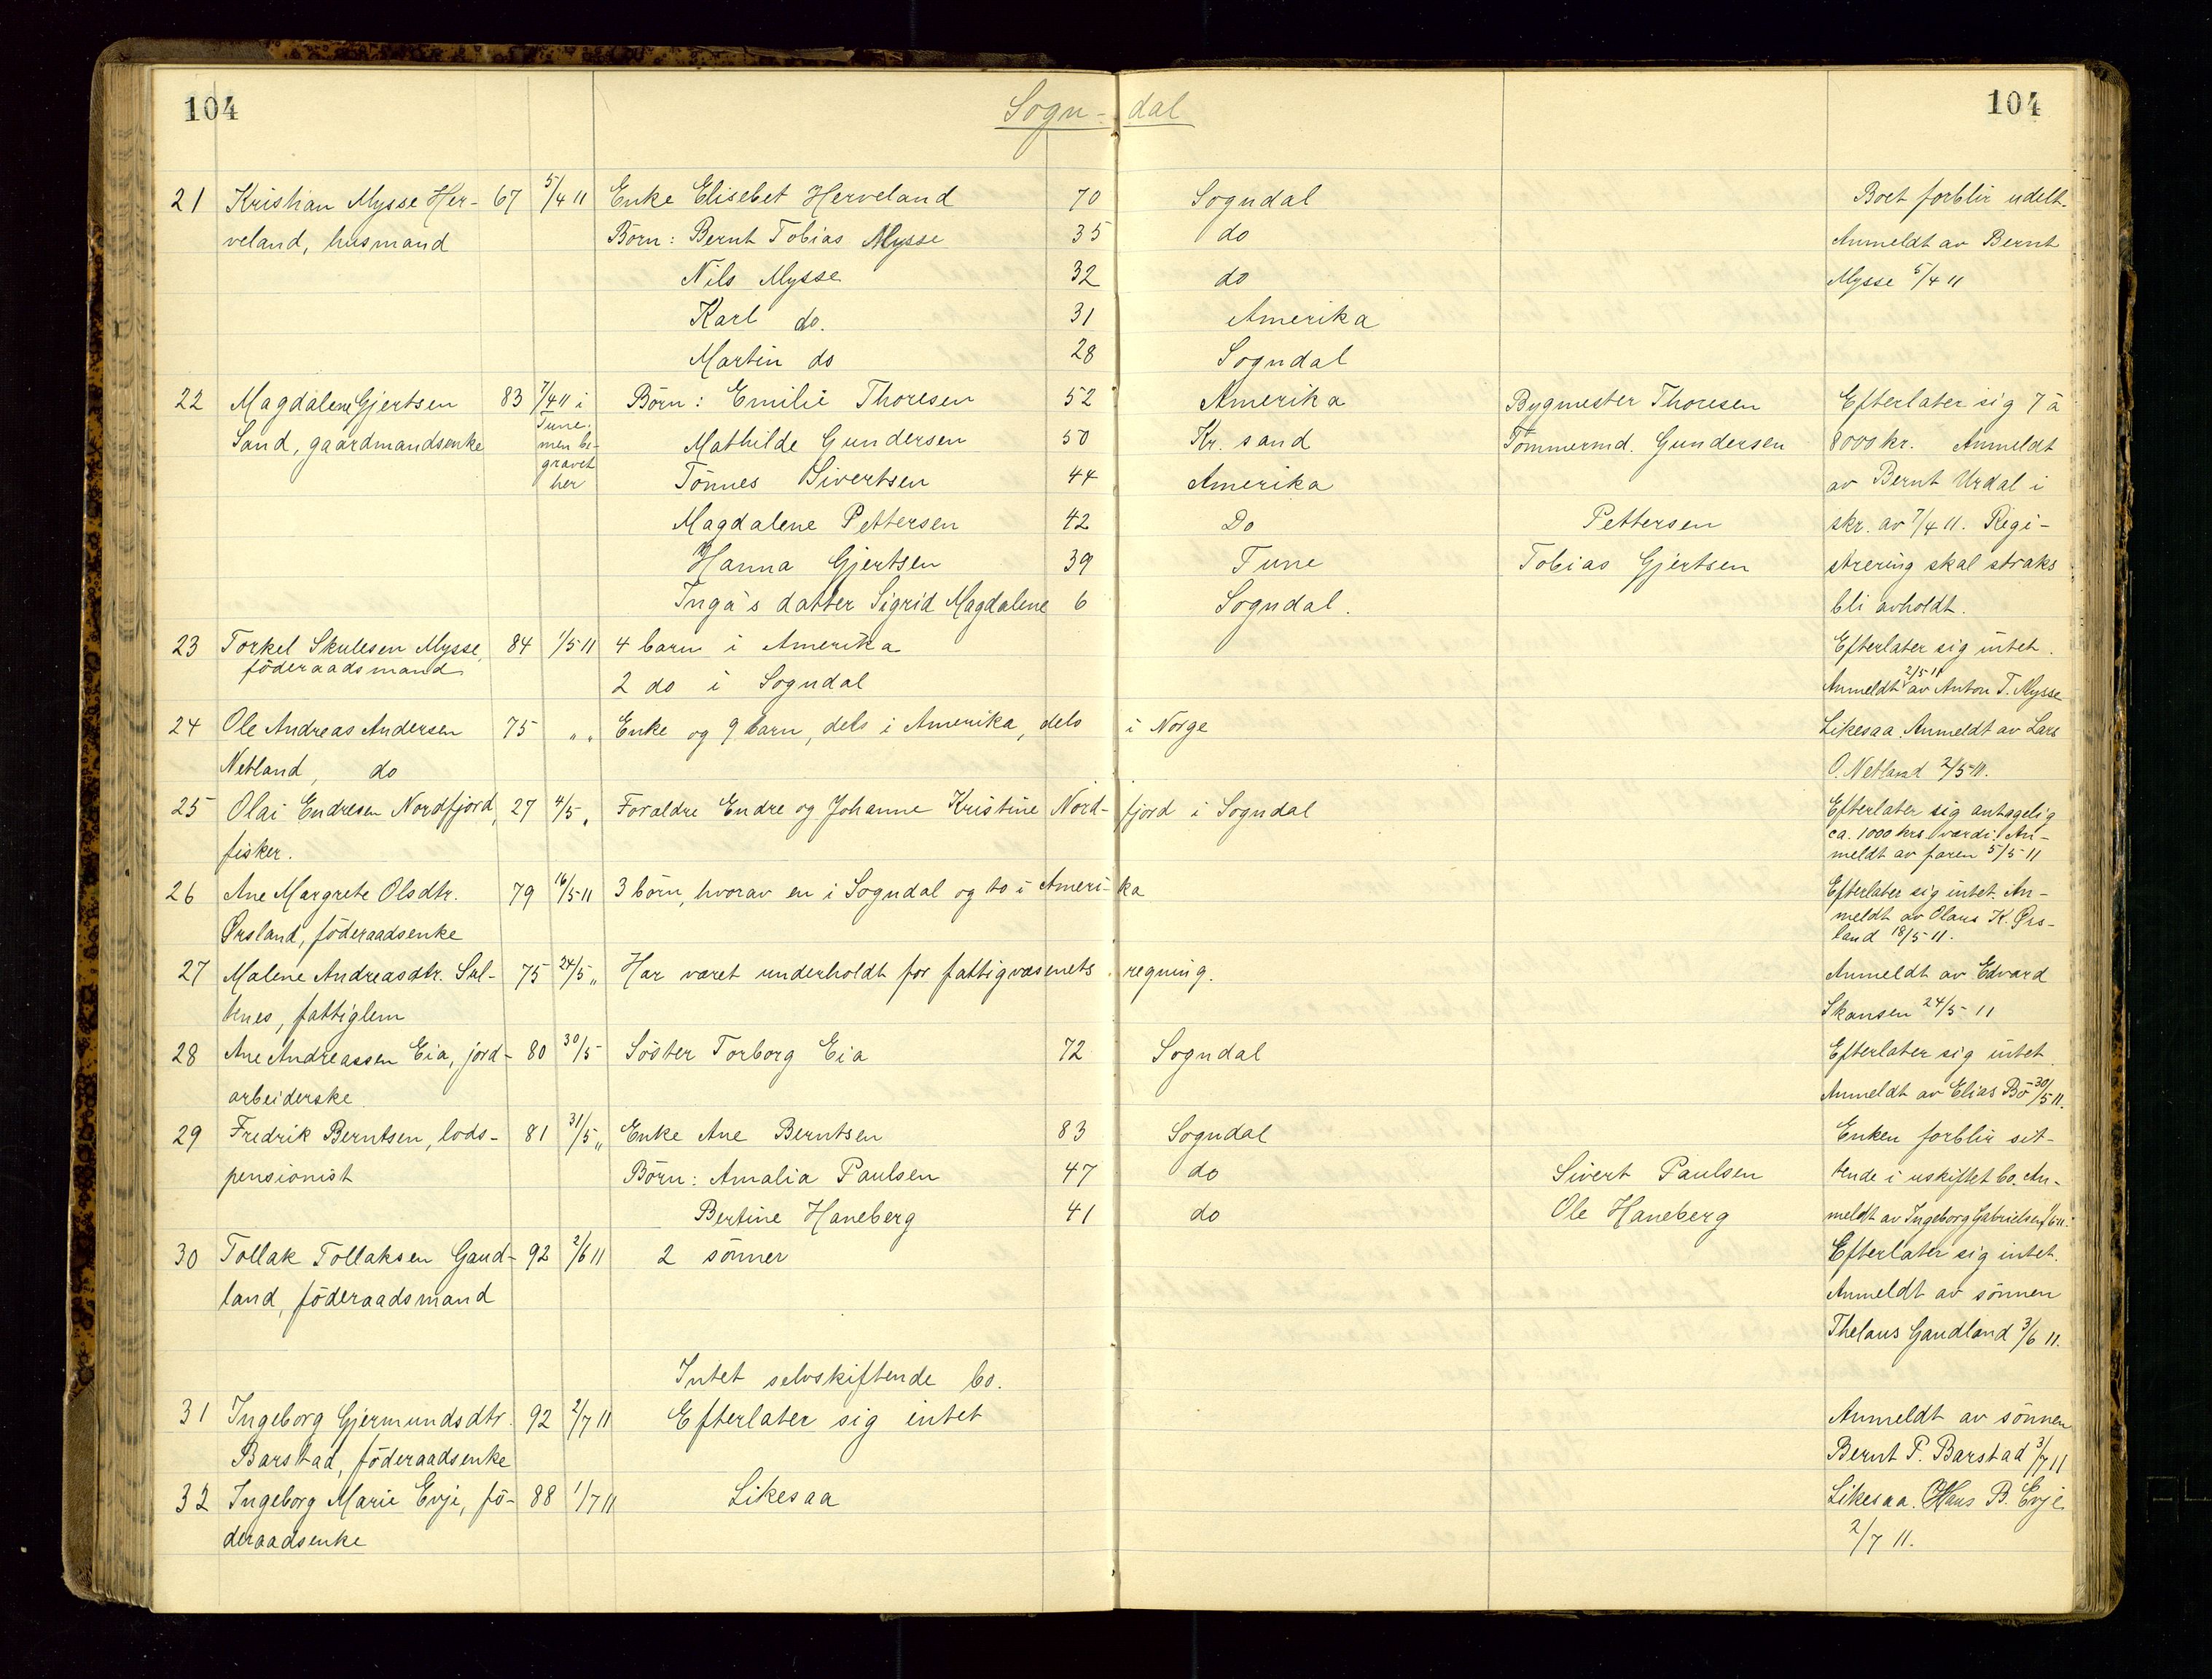 104 Sogn- dal 104
21 Kristian Mysse Her- 67 5/4 11 Enke Elisebet Herveland 70 Sogndal Boet forblir udelt.
veland, husmand Börn: Bernt Tobias Mysse 35 do Anmeldt av Bernt
Nils Mysse 32 do Mysse 5/4 11
Karl do. 31 Amerika
Martin do 28 Sogndal
22 Magdalene Gjertsen 83 7/4 11 i Börn: Emilie Thoresen 52 Amerika Bygmester Thoresen Efterlater sig 7 à
Sand, gaardmandsenke Tune, men be- Mathilde Gundersen 50 Kr. sand Tömmermd. Gundersen 8000 kr. Anmeldt
gravet her Tönnes Sivertsen 44 Amerika av Bernt Urdal i
Magdalene Pettersen 42 Do Pettersen skr. av 7/4 11. Regi-
Hanna Gjertsen 39 Tune Tobias Gjertsen strering skal straks
Inga's datter Sigrid Magdalene 6 Sogndal. bli avholdt.
23 Torkel Skulesen Mysse, 84 1/5 11 4 barn i Amerika Efterlater sig intet.
föderaadsmand 2 do i Sogndal Anmeldt 2/5 11 av Anton T. Mysse
24 Ole Andreas Andersen 75 " " Enke og 9 barn, dels i Amerika, dels i Norge Likesaa. Anmeldt av Lars
Netland, do O. Netland 2/5 11.
25 Olai Endresen Nordfjord, 27 4/5 " Foraldre Endre og Johanne Kristine Nord- fjord i Sogndal Efterlater sig antagelig
ca. 1000 krs værdi. An-
fisker. meldt av faren 5/5 11
26 Ane Margrete Olsdtr. 79 16/5 11 3 börn, hvorav en i Sogndal og to i Ameri- ka Efterlater sig intet. An-
meldt av Olaus K. Ørs-
Ørsland, föderaadsenke land 18/5 11.
27 Malene Andreasdtr. Sal- 75 24/5 " Har været underholdt for fattigvæsenets regning. Anmeldt av Edvard
tnes, fattiglem Skansen 24/5 11
28 Ane Andreassen Eia, jord- 80 30/5 Söster Torborg Eia 72 Sogndal Efterlater sig intet
arbeiderske Anmeldt av Elias Bö 30/5 11.
29 Fredrik Berntsen, lods- 81 31/5 " Enke Ane Berntsen 83 Sogndal Enken forblir sit-
pensionist Börn: Amalia Paulsen 47 do Sivert Paulsen tende i uskiftet bo. An-
Bertine Haneberg 41 do Ole Haneberg meldt av Ingeborg Gabrielsen 1/6 11.
30 Tollak Tollaksen Gaud- 92 2/6 11 2 sönner Efterlater sig intet.
land, föderaadsmand Anmeldt av sönnen
Thelaus Gaudland 3/6 11.
Intet selvskiftende bo.
31 Ingeborg Gjermundsdtr. 92 2/7 11 Efterlater sig intet Anmeldt av sönnen
Barstad, föderaadsenke Bernt P. Barstad 3/7 11
32 Ingeborg Marie Evje, fö- 88 1/7 11 Likesaa Likesaa. Hans B. Evje
deraadsenke 2/7 11.